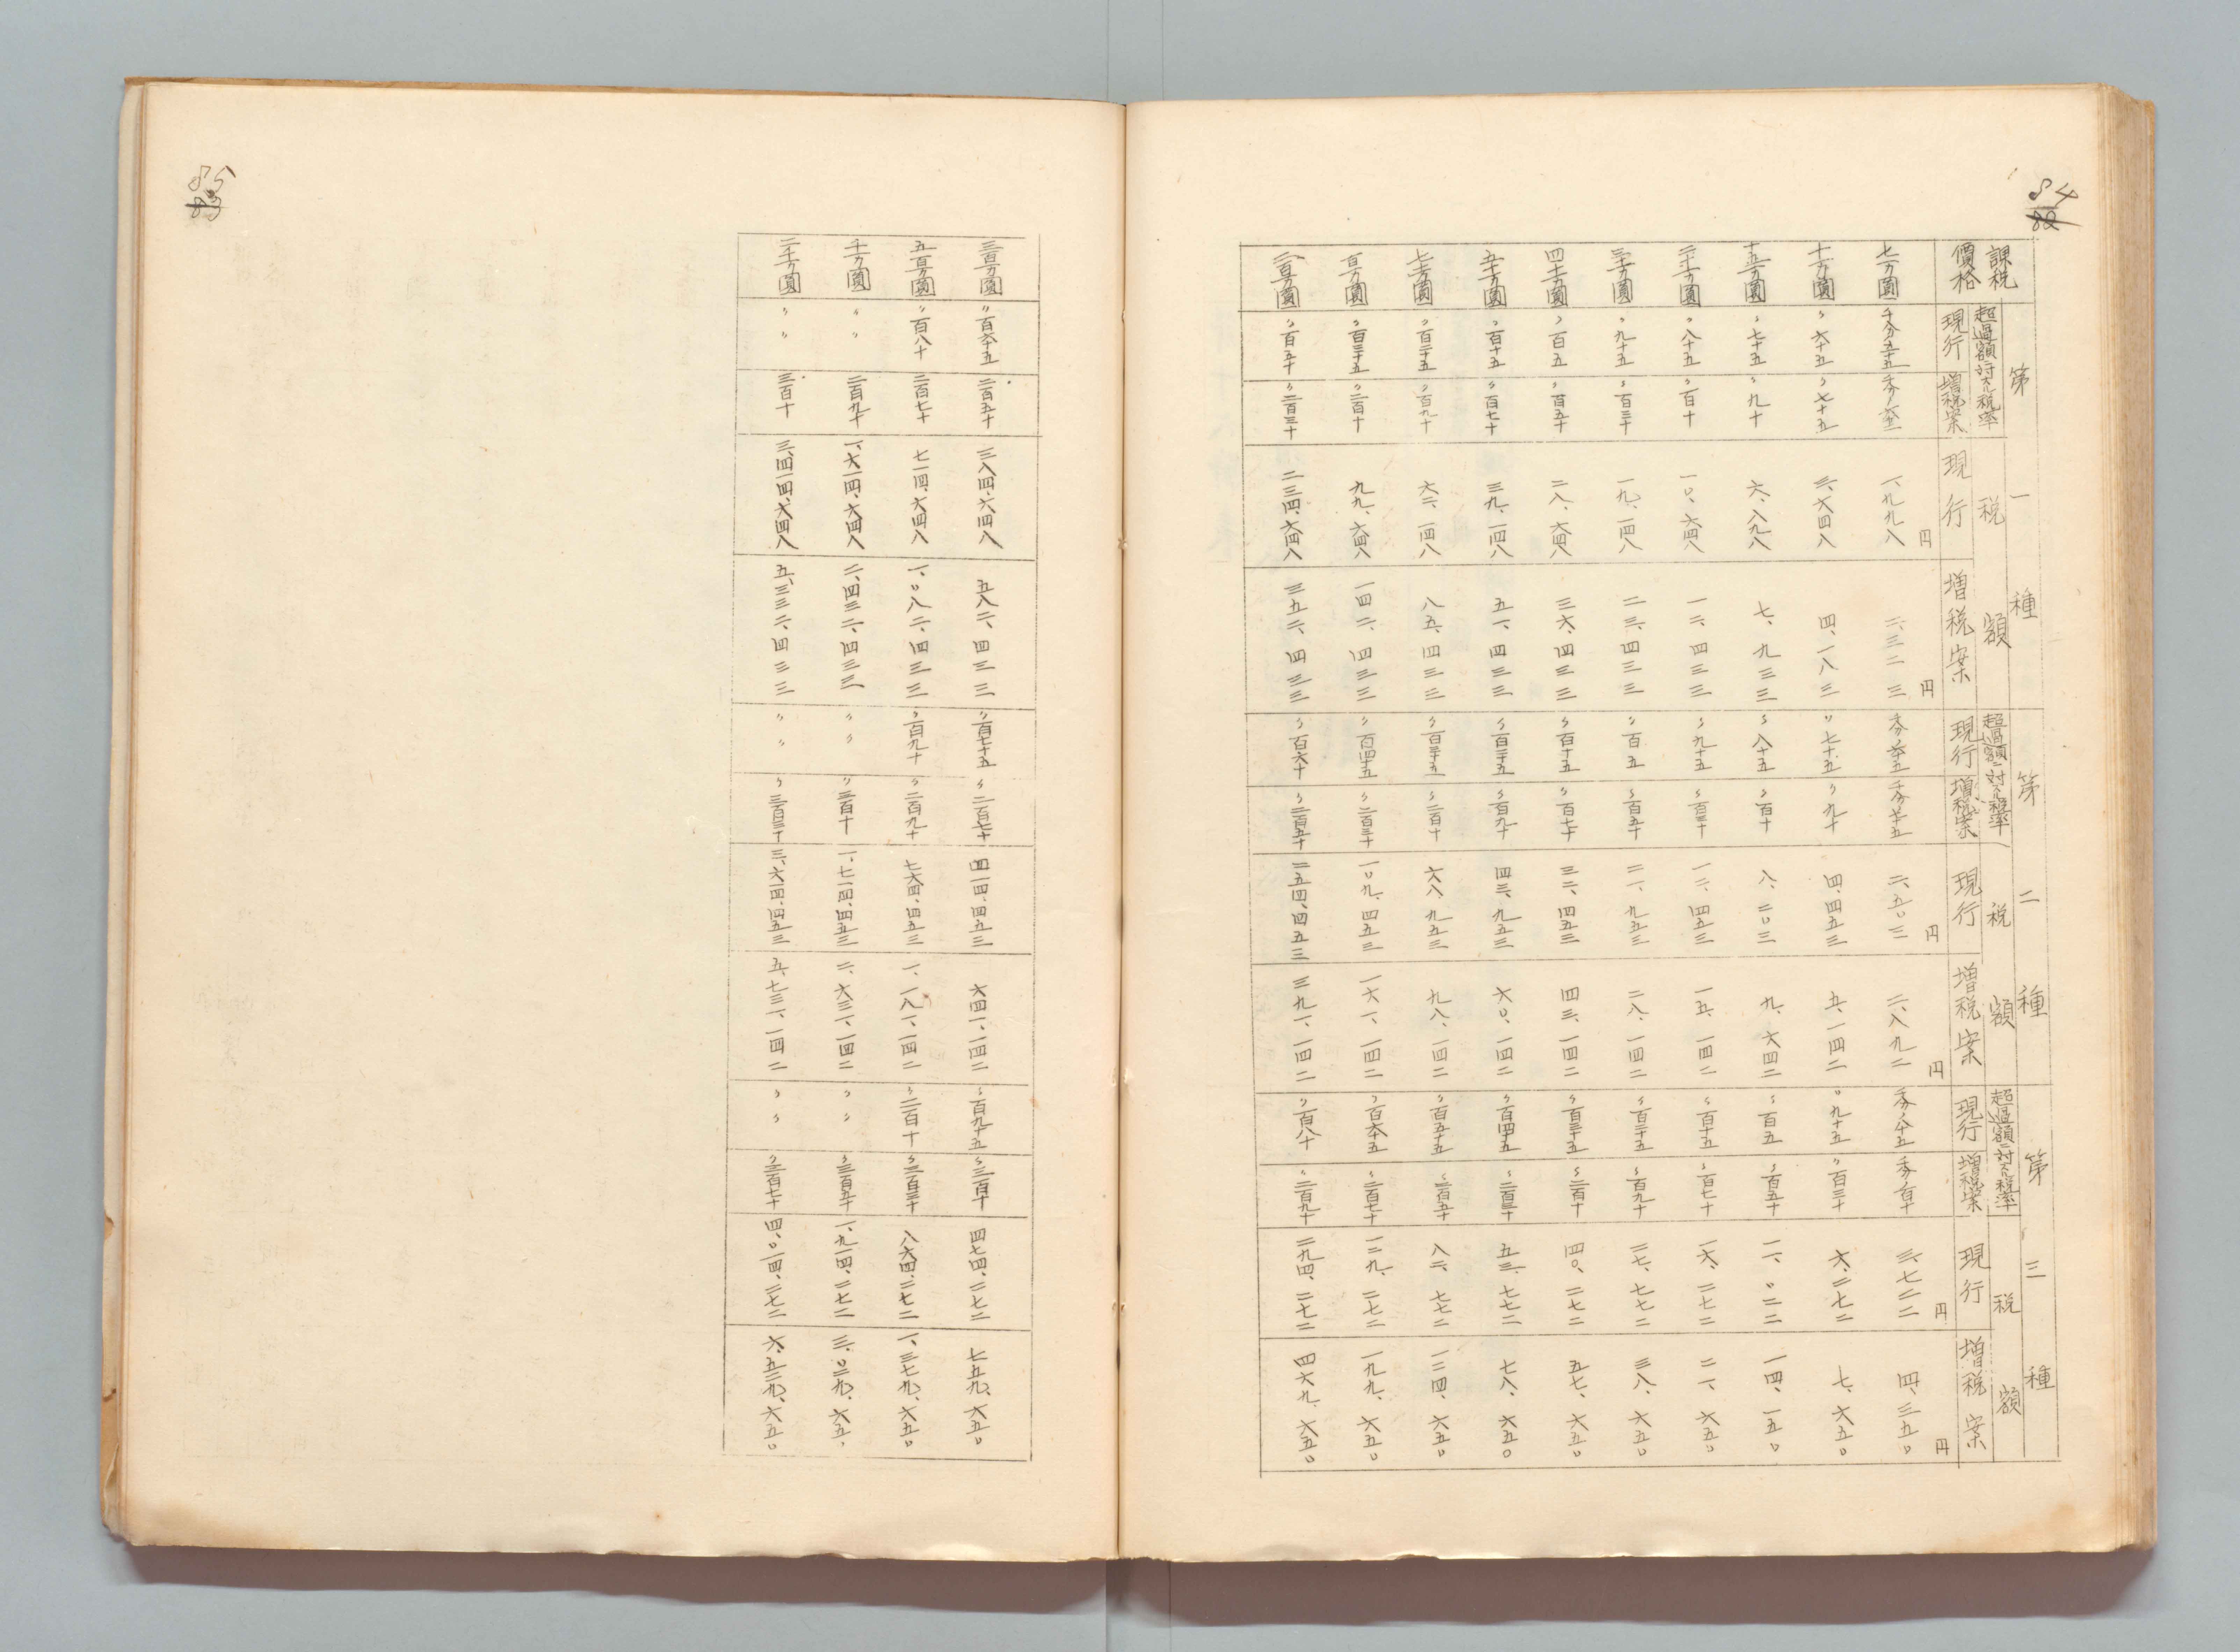 84
82
第一種 第二種 第三種
超過額ニ対スル税率 税額 超過額ニ対スル税率 税額 超過額ニ対スル税率 税額
課税價格 現行 増税案 現行 増税案 現行 増税案 現行 増税案 現行 増税案 現行 増税案
七万圓 千分ノ五十五 千分ノ六十二 一、九九八円 二、三二三円 千分ノ六十五 千分ノ七十五 二、五〇三円 二、八九二円 千分ノ八十五 千分ノ百十 三、七二二円 四、三五〇円
十万圓 〃六十五 〃七十五 三、六四八 四、一八三 〃七十五 〃九十 四、四五三 五、一四二 〃九十五 〃百三十 六、二七二 七、六五〇
十五万圓 〃七十五 〃九十 六、八九八 七、九三三 〃八十五 〃百十 八、二〇三 九、六四二 〃百五 〃百五十 一一、〇二二 一四、一五〇
二十万圓 〃八十五 〃百十 一〇、六四八 一二、四三三 〃九十五 〃百三十 一二、四五三 一五、一四二 〃百十五 〃百七十 一六、二七二 二一、六五〇
三十万圓 〃九十五 〃百三十 一九、一四八 二三、四三三 〃百五 〃百五十 二一、九五三 二八、一四二 〃百二十五 〃百九十 二七、七七二 三八、六五〇
四十万圓 〃百五 〃百五十 二八、六四八 三六、四三三 〃百十五 〃百七十 三二、四五三 四三、一四二 〃百三十五 〃二百十 四〇、二七二 五七、六五〇
五十万圓 〃百十五 〃百七十 三九、一四八 五一、四三三 〃百二十五 〃百九十 四三、九五三 六〇、一四二 〃百四十五 〃二百三十 五三、七七二 七八、六五〇
七十万圓 〃百二十五 〃百九十 六二、一四八 八五、四三三 〃百三十五 〃二百十 六八、九五三 九八、一四二 〃百五十五 〃二百五十 八二、七七二 一二四、六五〇
百万圓 〃百三十五 〃二百十 九九、六四八 一四二、四三三 〃百四十五 〃二百三十 一〇九、四五三 一六一、一四二 〃百六十五 〃二百七十 一二九、二七二 一九九、六五〇
二百万圓 〃百五十 〃二百三十 二三四、六四八 三五二、四三三 〃百六十 〃二百五十 二五四、四五三 三九一、一四二 〃百八十 〃二百九十 二九四、二七二 四六九、六五〇
85
83
三百万圓 〃百六十五 二百五十 三八四、六四八 五八二、四三三 〃百七十五 〃二百七十 四一四、四五三 六四一、一四二 〃百九十五 〃三百十 四七四、二七二 七五九、六五〇
五百万圓 〃百八十 二百七十 七一四、六四八 一、〇八二、四三三 〃百九十 〃二百九十 七六四、四五三 一、一八一、一四二 〃二百十 〃三百三十 八六四、二七二 一、三七九、六五〇
千万圓 〃〃 二百九十 一、六一四、六四八 二、四三二、四三三 〃〃 〃三百十 一、七一四、四五三 二、六三一、一四二 〃〃 〃三百五十 一、九一四、二七二 三、〇二九、六五〇
二千万圓 〃〃 三百十 三、四一四、六四八 五、三三二、四三三 〃〃 〃三百三十 三、六一四、四五三 五、七三一、一四二 〃〃 〃三百七十 四、〇一四、二七二 六、五二九、六五〇